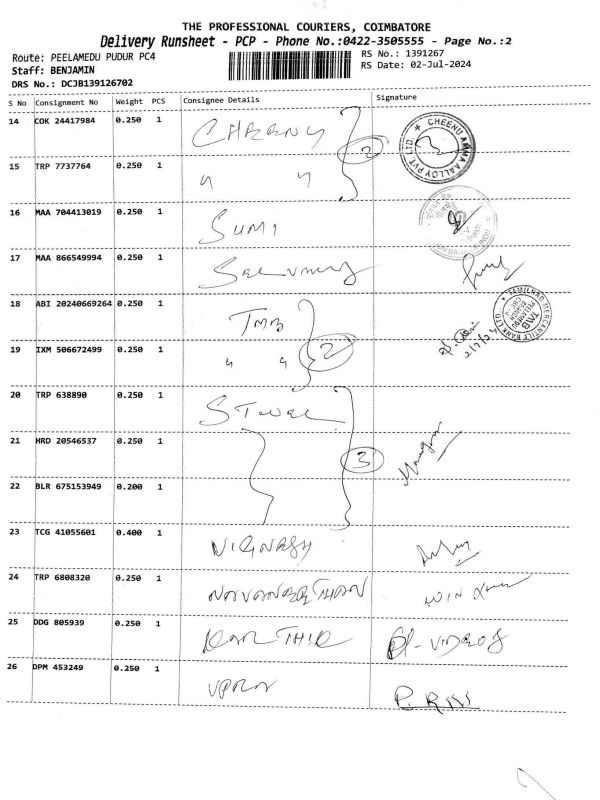 THE PROFESSIONAL COURIERS, COIMBATORE
Delivery Runsheet - PCP - Phone No.:0422-3505555 - Page No.:2
Route: PEELAMEDU PUDUR PC4
RS No.: 1391267
Staff: BENJAMIN
RS Date: 02-Jul-2024
DRS No.: DCJB139126702
S No Consignment No Weight PCS Consignee Details Signature
14 COK 24417984 0.250 1
2
CHEENU AMMA ALLOY PVT. LTD.
15 TRP 7737764 0.250 1 " "
16 MAA 704413019 0.250 1 SUMI
17 MAA 866549994 0.250 1
18 ABI 20240669264 0.250 1 TMB
TAMILNAD MERCANTILE BANK LTD.
TMB
19 IXM 506672499 0.250 1 " " 2
2/7/24
20 TRP 638890 0.250 1
21 HRD 20546537 0.250 1 3
22 BLR 675153949 0.200 1
23 TCG 41055601 0.400 1 VIGNESH
24 TRP 6808320 0.250 1
25 DDG 805939 0.250 1 KARTHIK
26 DPM 453249 0.250 1